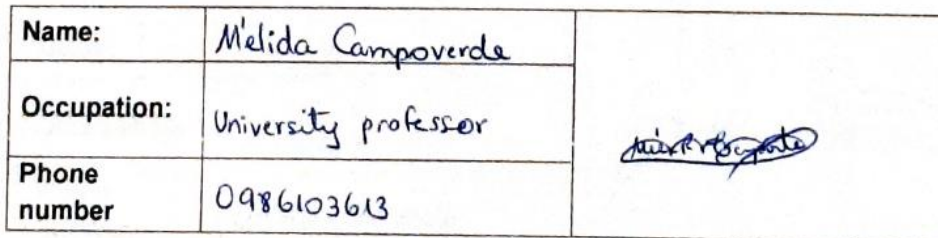 Name: Mélida Campoverde
Occupation: University professor
Phone number 0986103613